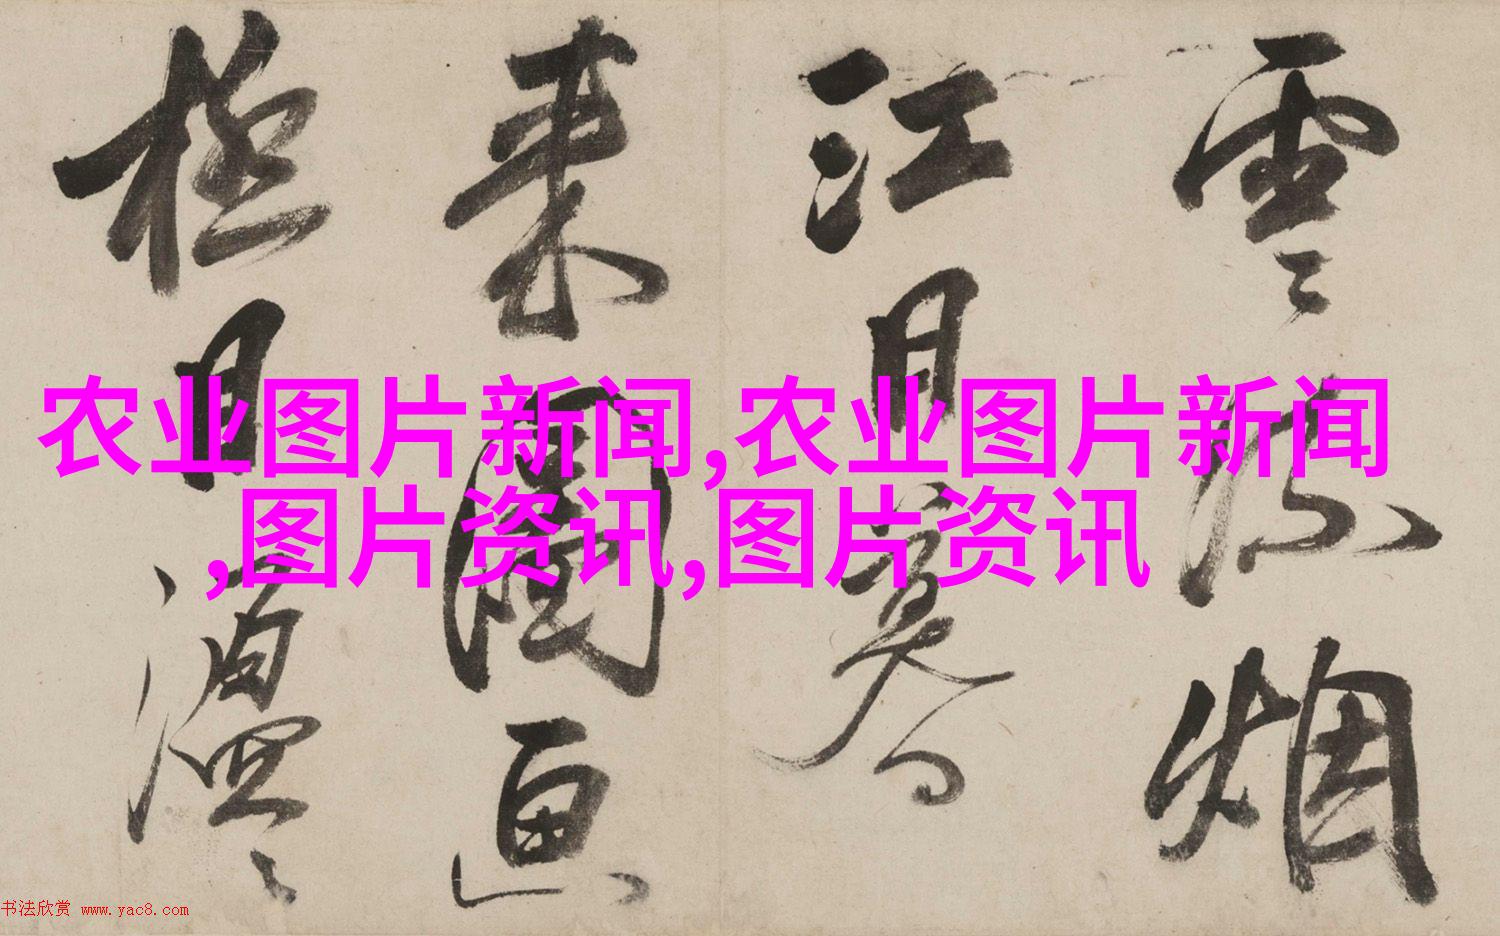 雲〻烟
江
来圖画
極目
农业图片新闻,农业图片新闻
,图片资讯,图片资讯
书法欣赏 www.yac8.com